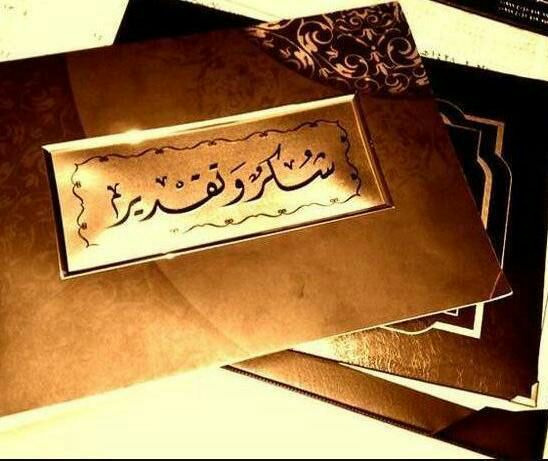 شُكْرٌ وَتَقْدِير